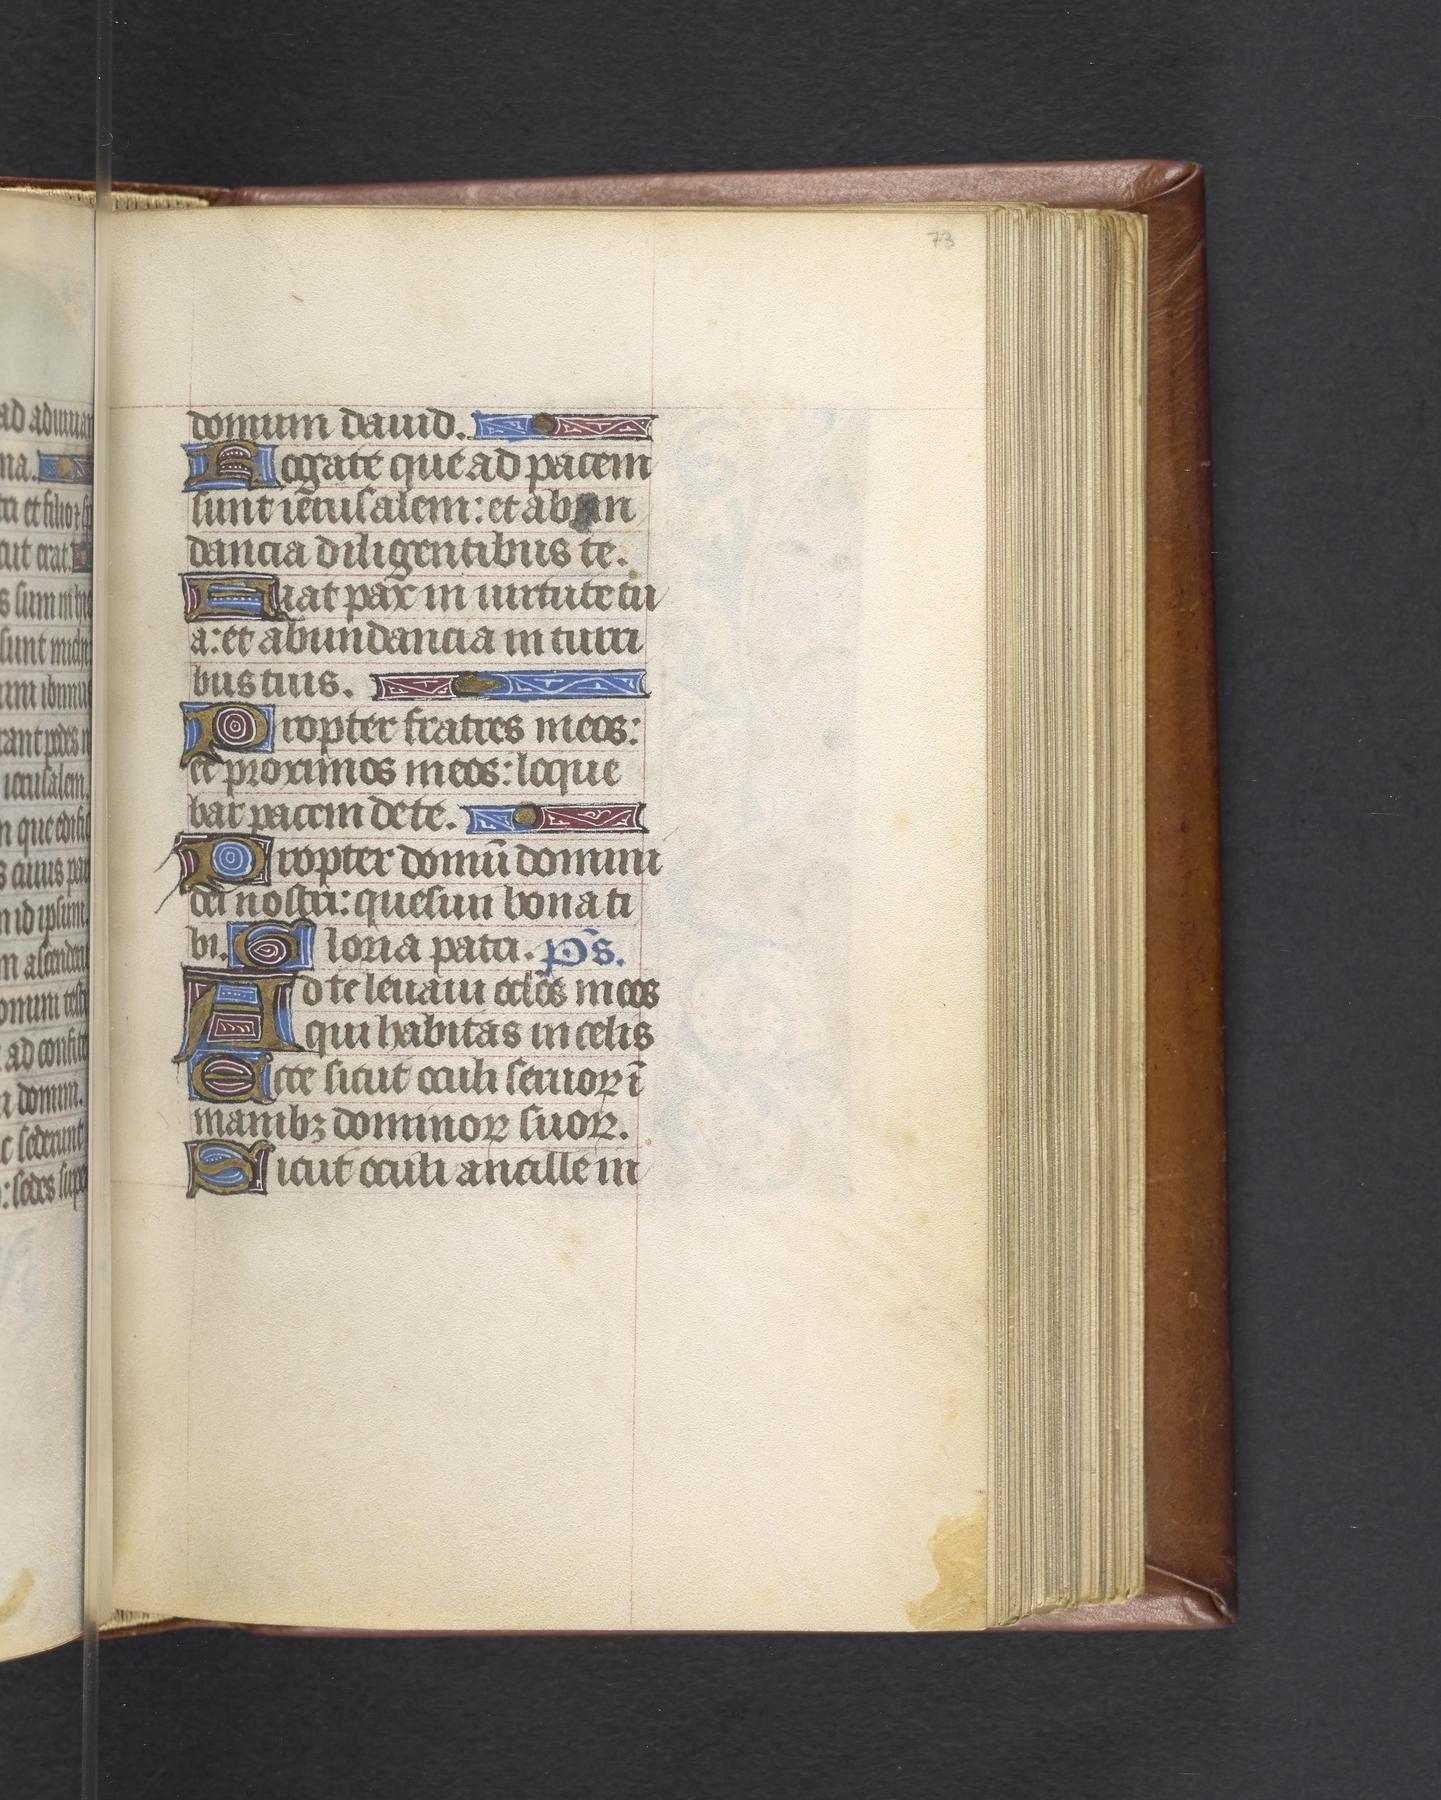 73
domum dauid.
Rogate que ad pacem
sunt ierusalem: et abun
dancia diligentibus te.
Fiat pax in uirtute tu
a: et abundancia in turri
bus tuis.
Propter fratres meos:
et proximos meos: loque
bar pacem de te.
Propter domū domini
dei nostri: quesiui bona ti
bi. Gloria patri. Ps.
Ad te leuaui oclos meos
qui habitas in celis
Ecce sicut oculi seruoꝝ ī
manibꝫ dominoꝝ suoꝝ.
Sicut oculi ancille in